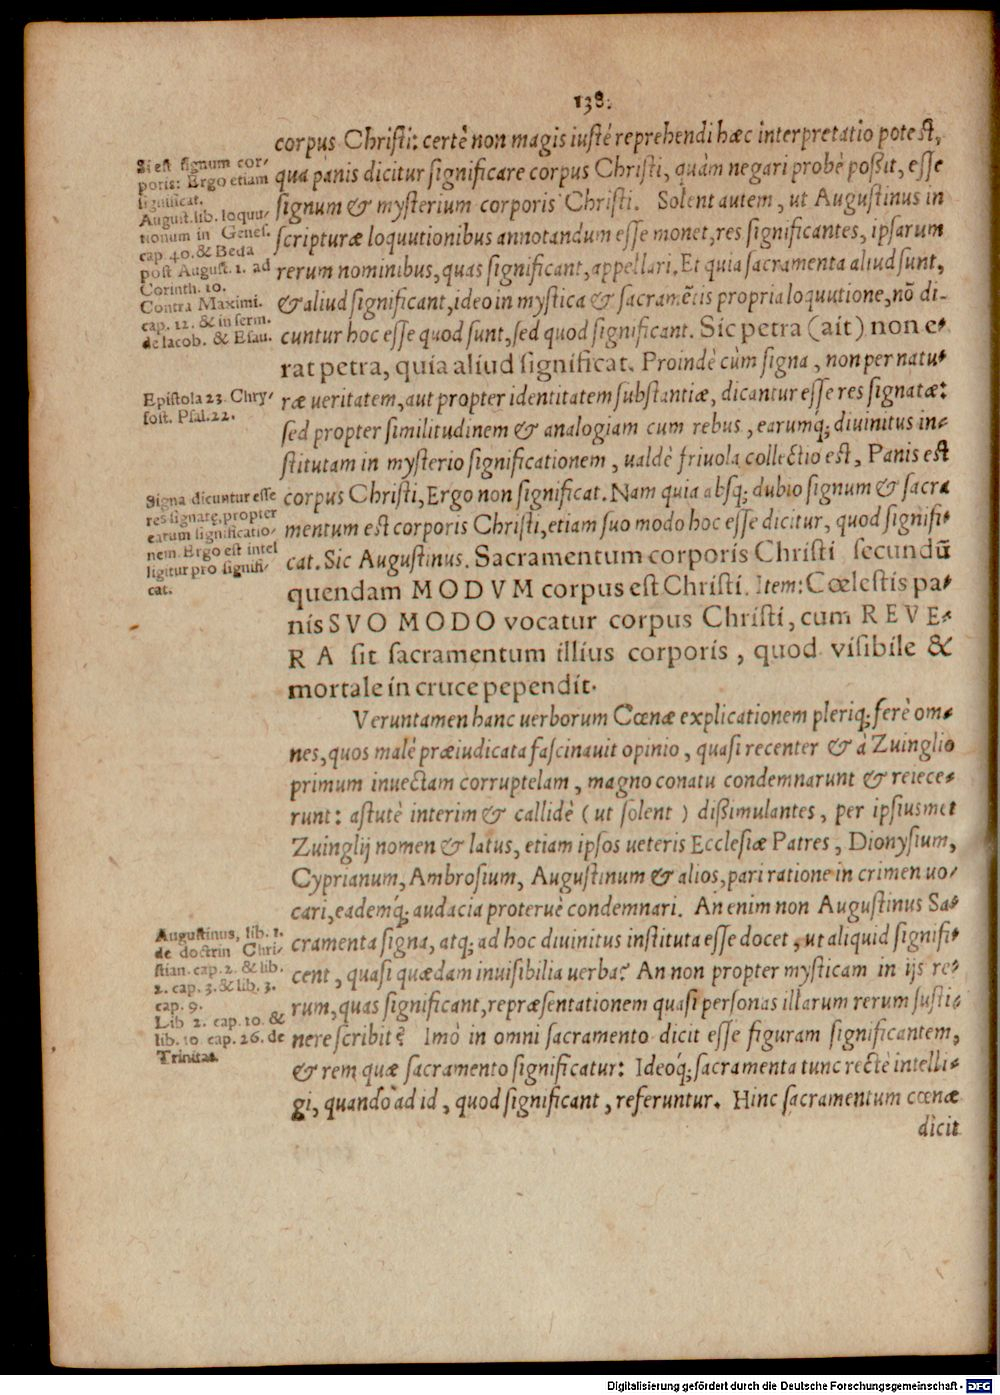 138.
corpus Christi: certè non magis iustè reprehendi hæc interpretatio potest,
qua panis dicitur significare corpus Christi, quàm negari probè poßit, esse
signum & mysterium corporis Christi. Solent autem, ut Augustinus in
scripturæ loquutionibus annotandum esse monet, res significantes, ipsarum
rerum nominibus, quas significant, appellari. Et quia sacramenta aliud sunt,
& aliud significant, ideo in mystica & sacramẽtis propria loquutione, nõ di-
cuntur hoc esse quod sunt, sed quod significant. Sic petra (ait) non e-
rat petra, quia aliud significat. Proindè cùm signa, non per natu-
ræ ueritatem, aut propter identitatem substantiæ, dicantur esse res signatæ:
sed propter similitudinem & analogiam cum rebus, earumq; diuinitus in-
stitutam in mysterio significationem, ualdè friuola collectio est, Panis est
corpus Christi, Ergo non significat. Nam quia absq; dubio signum & sacra
mentum est corporis Christi, etiam suo modo hoc esse dicitur, quod signifi-
cat. Sic Augustinus. Sacramentum corporis Christi secundũ
quendam MODVM corpus est Christi. Item: Cœlestis pa-
nis SVO MODO vocatur corpus Christi, cum REVE-
RA sit sacramentum illius corporis, quod visibile &
mortale in cruce pependit.
Veruntamen hanc uerborum Cœnæ explicationem pleriq; ferè om-
nes, quos malè præiudicata fascinauit opinio, quasi recenter & à Zuinglio
primum inuectam corruptelam, magno conatu condemnarunt & reiece-
runt: astutè interim & callidè (ut solent) dißimulantes, per ipsiusmet
Zuinglij nomen & latus, etiam ipsos ueteris Ecclesiæ Patres, Dionysium,
Cyprianum, Ambrosium, Augustinum & alios, pari ratione in crimen uo-
cari, eademq́; audacia proteruè condemnari. An enim non Augustinus Sa-
cramenta signa, atq; ad hoc diuinitus instituta esse docet, ut aliquid signifi-
cent, quasi quædam inuisibilia uerba? An non propter mysticam in ijs re-
rum, quas significant, repræsentationem quasi personas illarum rerum susti-
nere scribit? Imò in omni sacramento dicit esse figuram significantem,
& rem quæ sacramento significatur: Ideoq́; sacramenta tunc rectè intelli-
gi, quando ad id, quod significant, referuntur. Hinc sacramentum cœnæ
dicit
Si est signum cor-
poris: Ergo etiam
significat.
August. lib. loquu-
tionum in Genes.
cap. 40. & Beda
post August. 1. ad
Corinth. 10.
Contra Maximi.
cap. 12. & in serm.
de Iacob. & Esau.
Epistola 23. Chry-
sost. Psal. 22.
Signa dicuntur esse
res signatę, propter
earum significatio-
nem. Ergo est intel
ligitur pro signifi-
cat.
Augustinus, lib. 1.
de doctrin Chri-
stian. cap. 2. & lib.
2. cap. 3. & lib. 3.
cap. 9.
Lib 2. cap. 10. &
lib. 10. cap. 26. de
Trinitat.
Digitalisierung gefördert durch die Deutsche Forschungsgemeinschaft - DFG